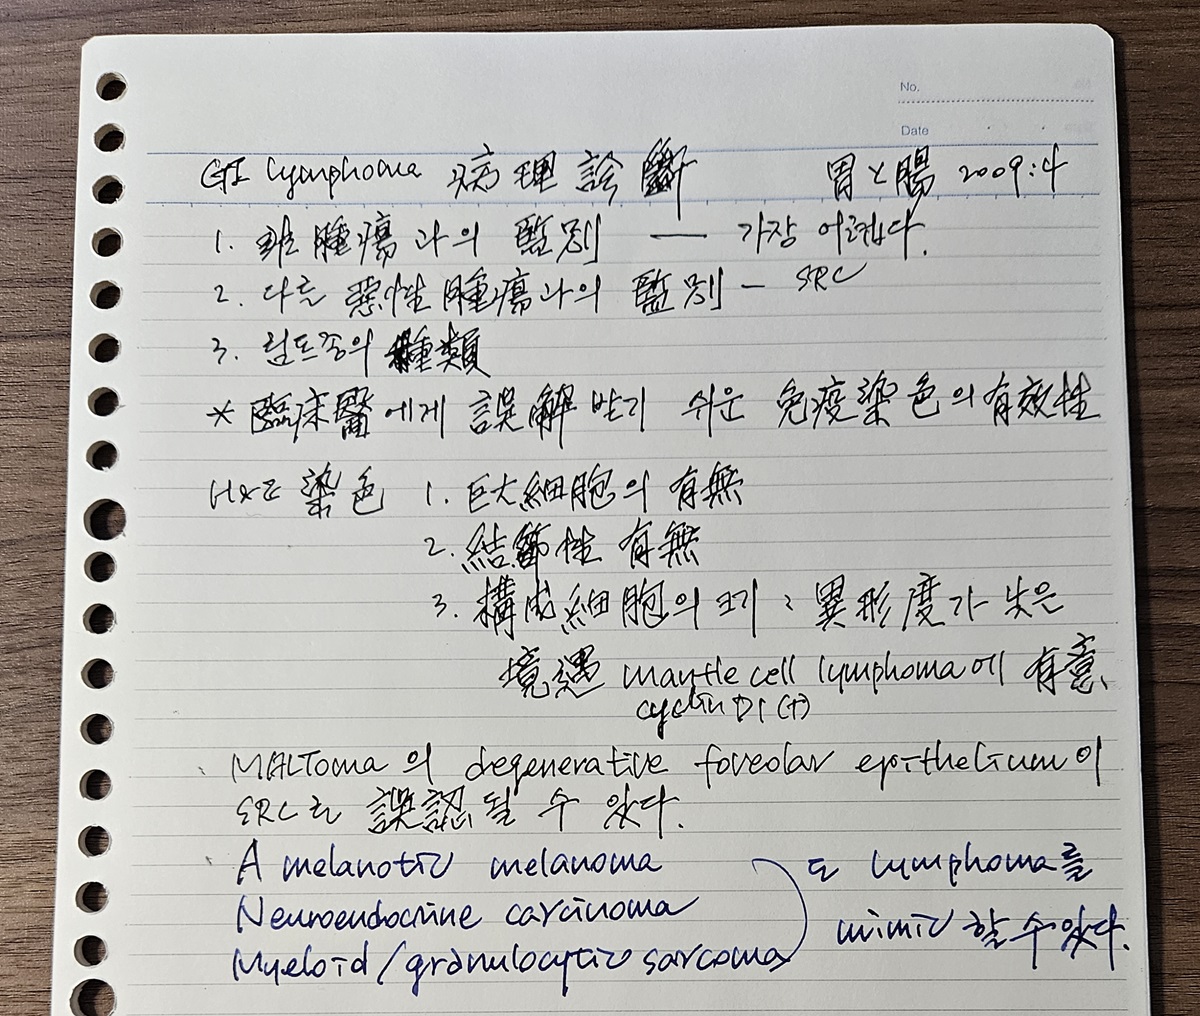 No.
Date
GI lymphoma 病理診斷 胃と腸 2009:4
1. 非腫瘍과의 鑑別 — 가장 어렵다.
2. 다른 惡性腫瘍과의 鑑別 - SRC
3. 림프종의 種類
* 臨床醫에게 誤解받기 쉬운 免疫染色의 有效性
H&E 染色 1. 巨大細胞의 有無
2. 結節性 有無
3. 構成細胞의 크기 : 異形度가 낮은
境遇 mantle cell lymphoma에 有意
cyclin D1 (+)
MALToma의 degenerative foveolar epithelium이
SRC로 誤認될 수 있다.
Amelanotic melanoma
Neuroendocrine carcinoma
Myeloid/granulocytic sarcoma
도 lymphoma를
mimic 할 수 있다.